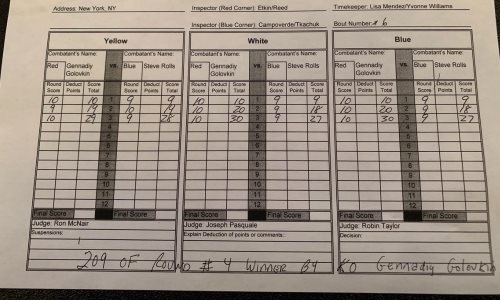 Address: New York, NY Inspector (Red Corner): Etkin/Reed Timekeeper: Lisa Mendez/Yvonne Williams
Inspector (Blue Corner): Campoverde/Tkachuk Bout Number: # 6
Yellow
Combatant's Name: vs. Combatant's Name:
Red Gennadiy Golovkin Blue Steve Rolls
Round Score Deduct Points Score Total Round Score Deduct Points Score Total
10 10 1 9 9
9 19 2 10 19
10 29 3 9 28
4
5
6
7
8
9
10
11
12
Final Score Final Score
Judge: Ron McNair
Suspensions:
White
Combatant's Name: vs. Combatant's Name:
Red Gennadiy Golovkin Blue Steve Rolls
Round Score Deduct Points Score Total Round Score Deduct Points Score Total
10 10 1 9 9
10 20 2 9 18
10 30 3 9 27
4
5
6
7
8
9
10
11
12
Final Score Final Score
Judge: Joseph Pasquale
Explain Deduction of points or comments:
Blue
Combatant's Name: vs. Combatant's Name:
Red Gennadiy Golovkin Blue Steve Rolls
Round Score Deduct Points Score Total Round Score Deduct Points Score Total
10 10 1 9 9
10 20 2 9 18
10 30 3 9 27
4
5
6
7
8
9
10
11
12
Final Score Final Score
Judge: Robin Taylor
Decision:
209 OF ROUND # 4 WINNER BY KO Gennadiy Golovkin